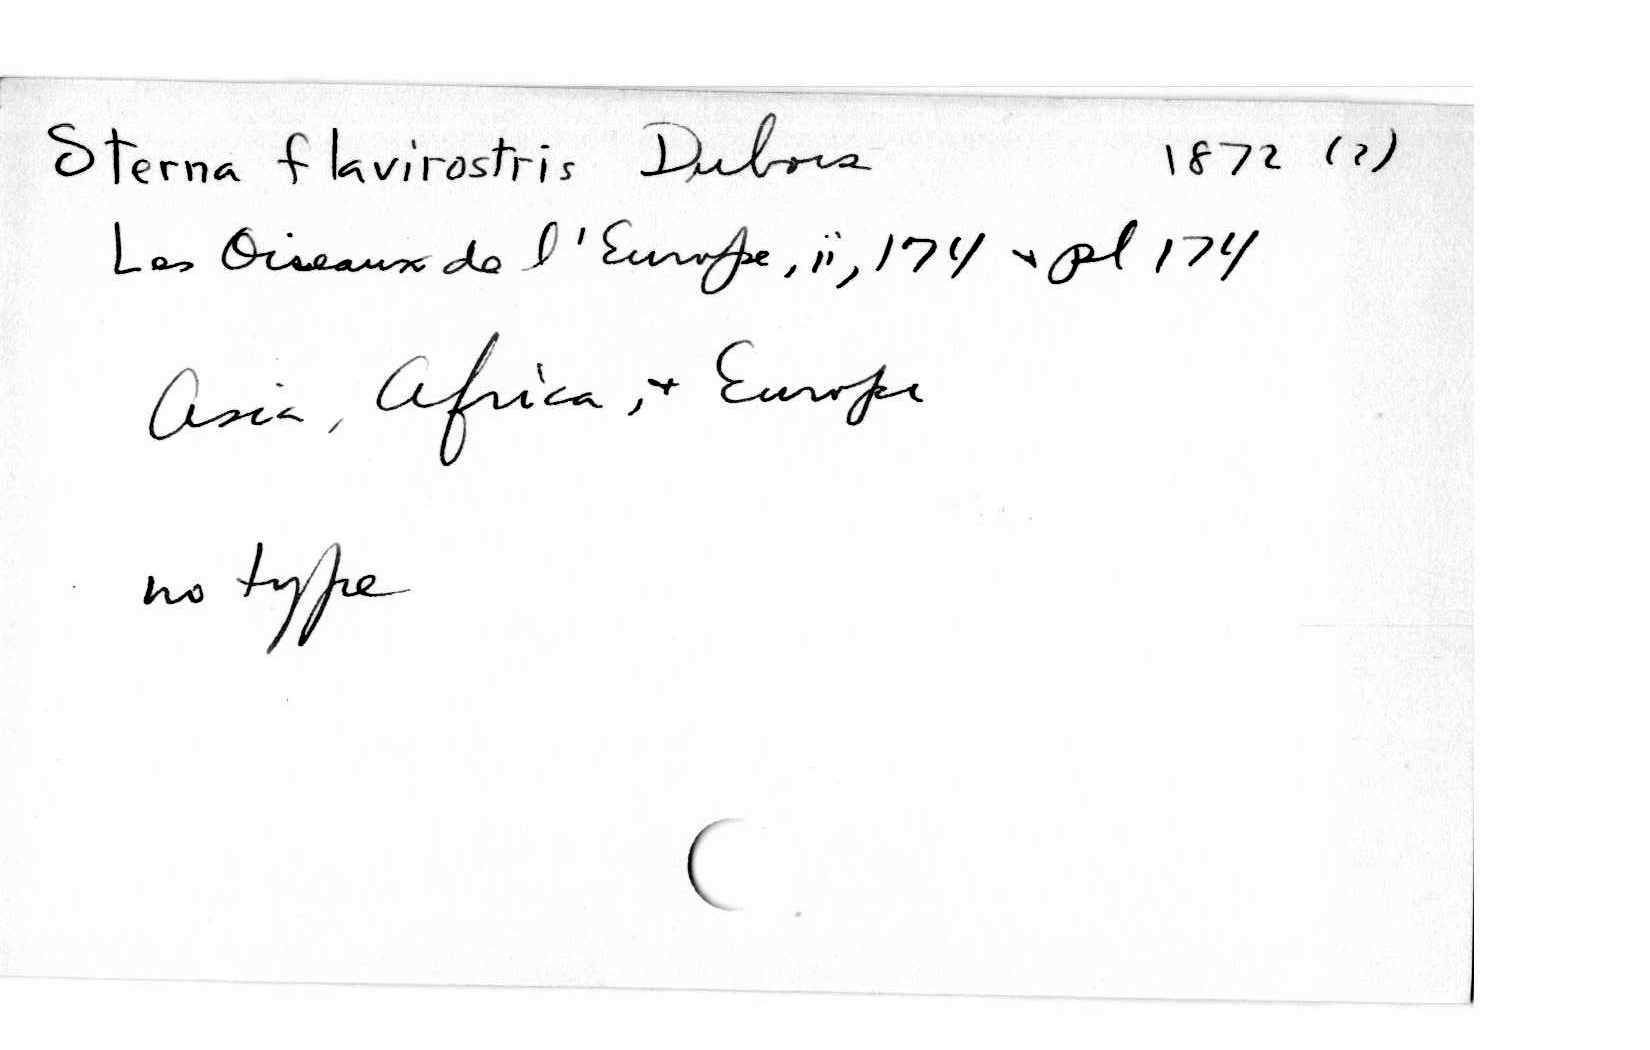 Sterna flavirostris Dubois 1872 (?)
Les Oiseaux de l'Europe, ii, 174 + pl 174
Asia, Africa, + Europe
no type